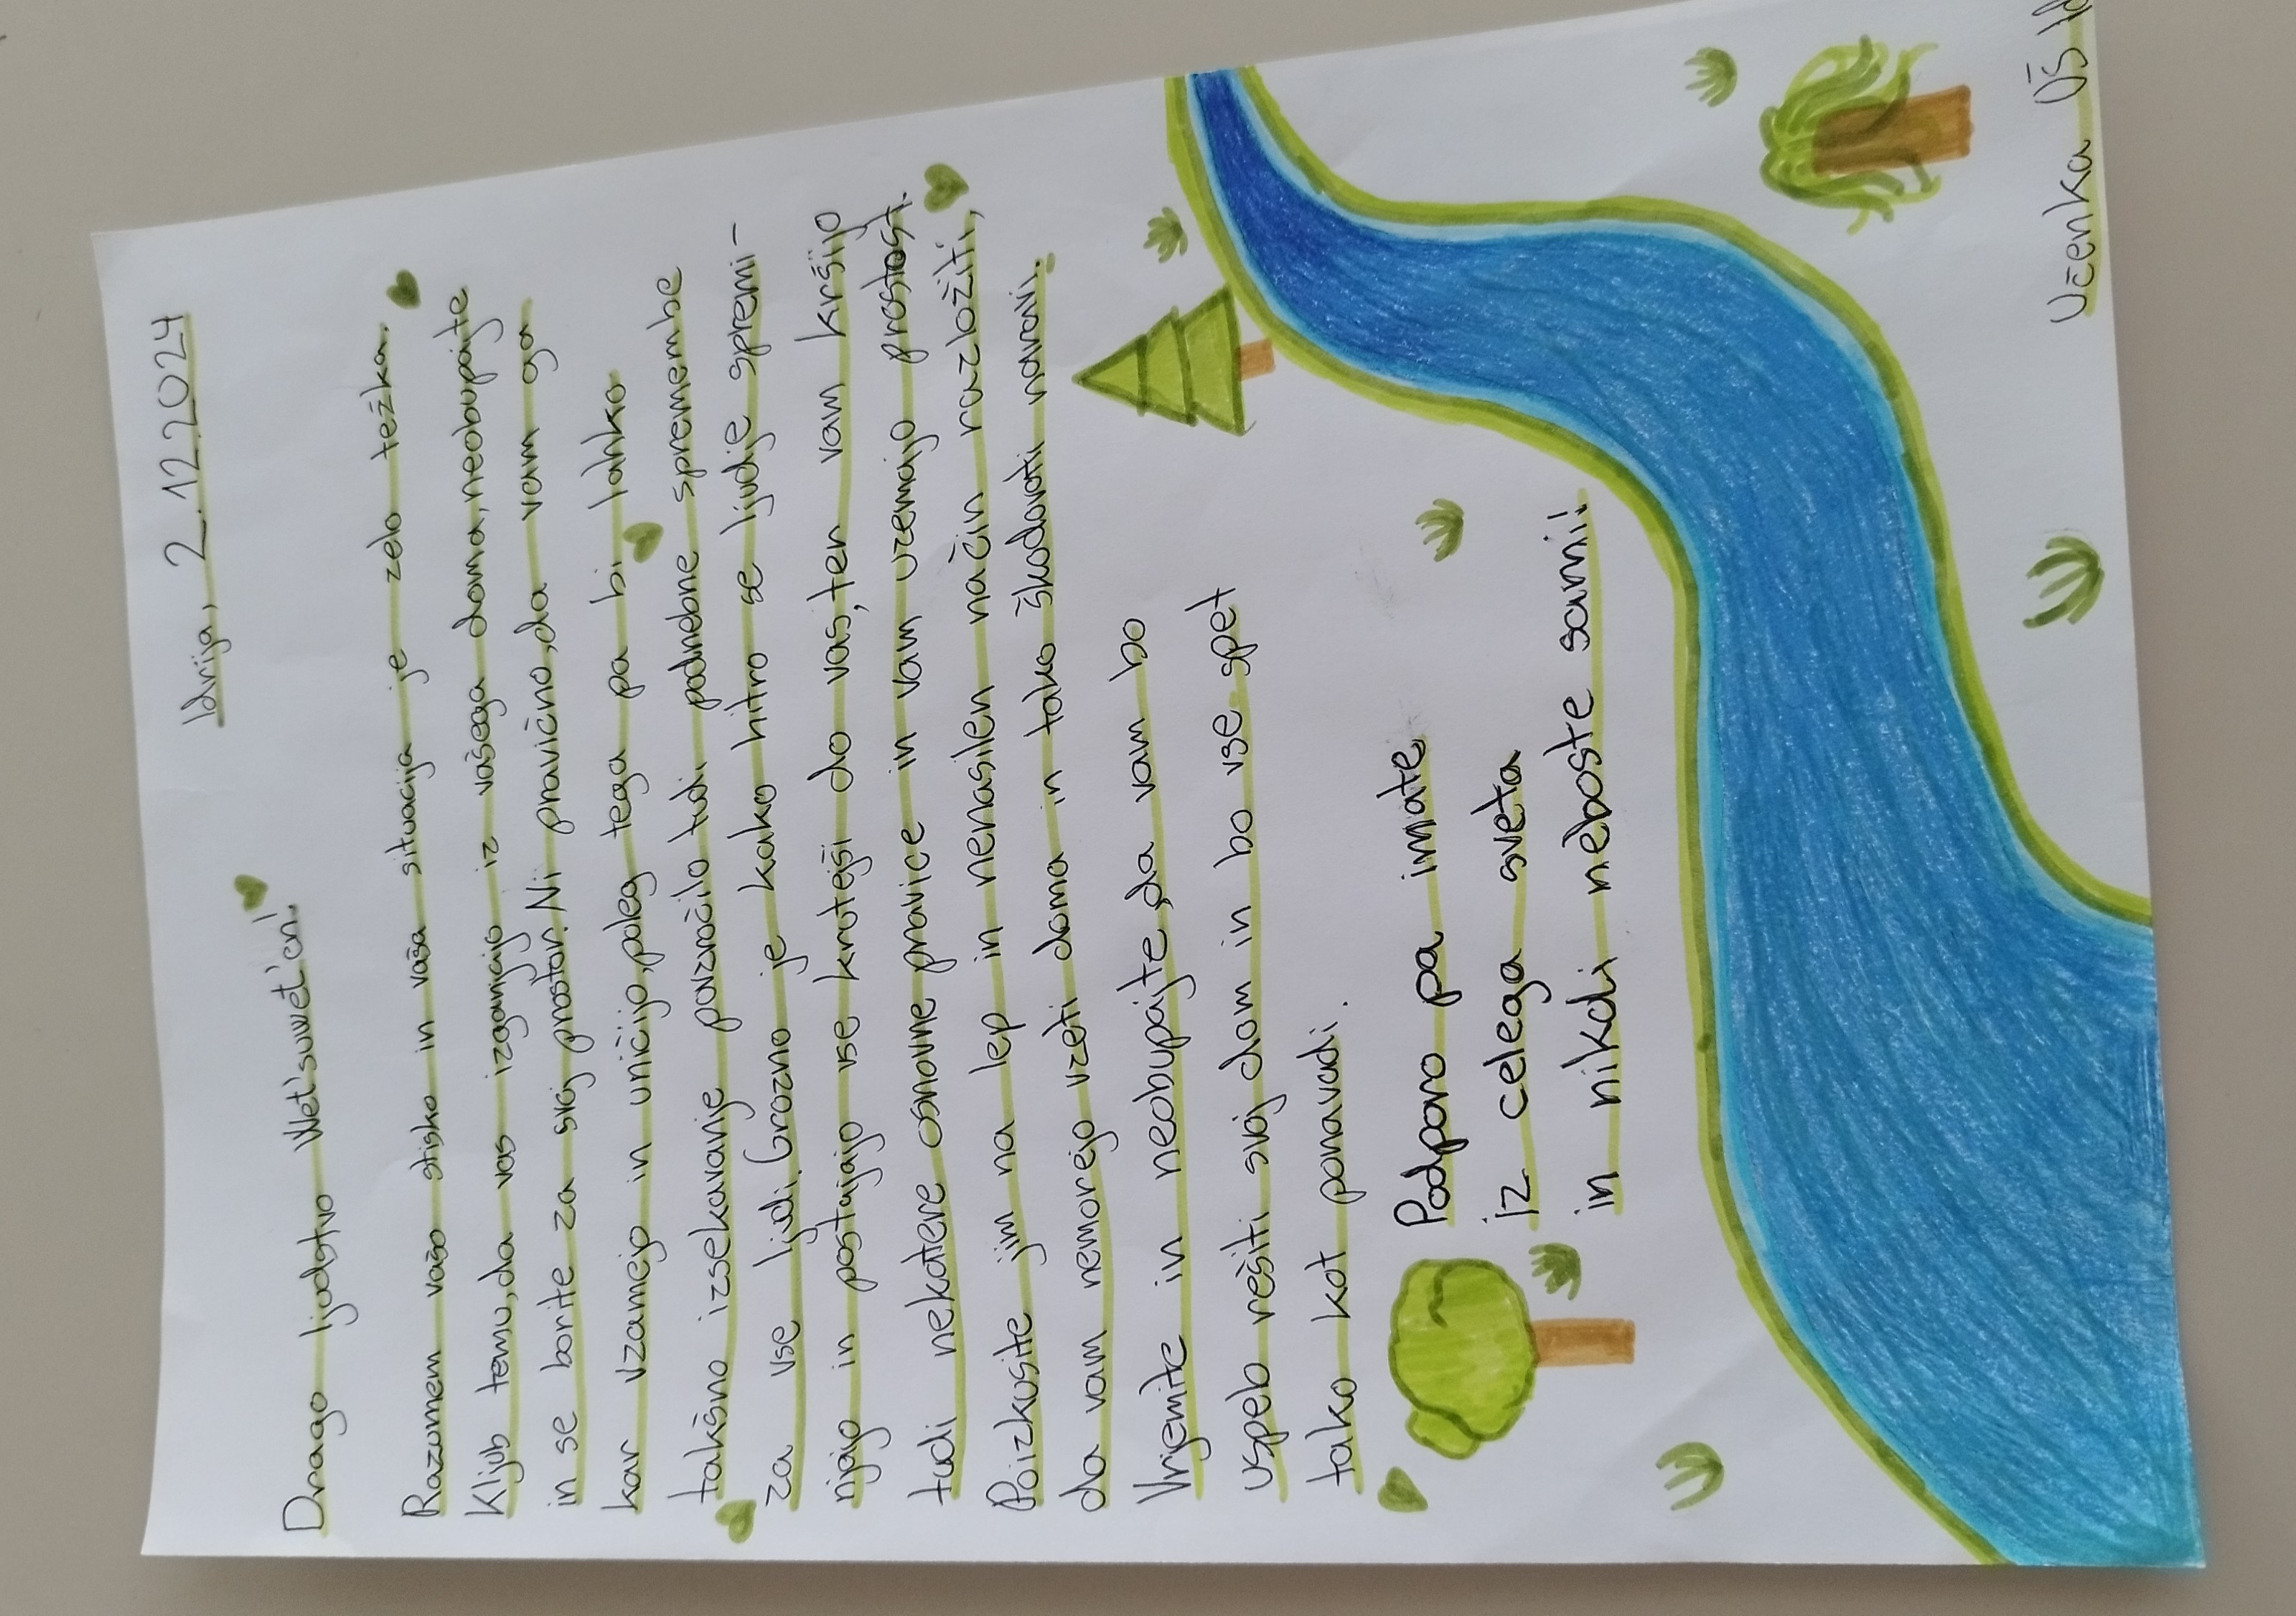 Idrija, 2.12.2024
Drago ljudstvo Wet'suwet'en!
Razumem vašo stisko in vaša situacija je zelo težka.
Kljub temu, da vas izganjajo iz vašega doma, neobupajte
in se borite za svoj prostor. Ni pravično, da vam ga
kar vzamejo in uničijo, poleg tega pa bi lahko
takšno izsekavanje povzročilo tudi podnebne spremembe
za vse ljudi. Grozno je kako hitro se ljudje spremi-
njajo in postajajo vse krutejši do vas, ter vam kršijo
tudi nekatere osnovne pravice in vam uzemajo prostost.
Poizkusite jim na lep in nenasilen način razložiti,
da vam nemorejo vzeti doma in tako škodovati naravi.
Vrjemite in neobupajte, da vam bo
uspeb rešiti svoj dom in bo vse spet
tako kot ponavadi.
Podporo pa imate
iz celega sveta
in nikdi neboste sami!
Učenka OŠ